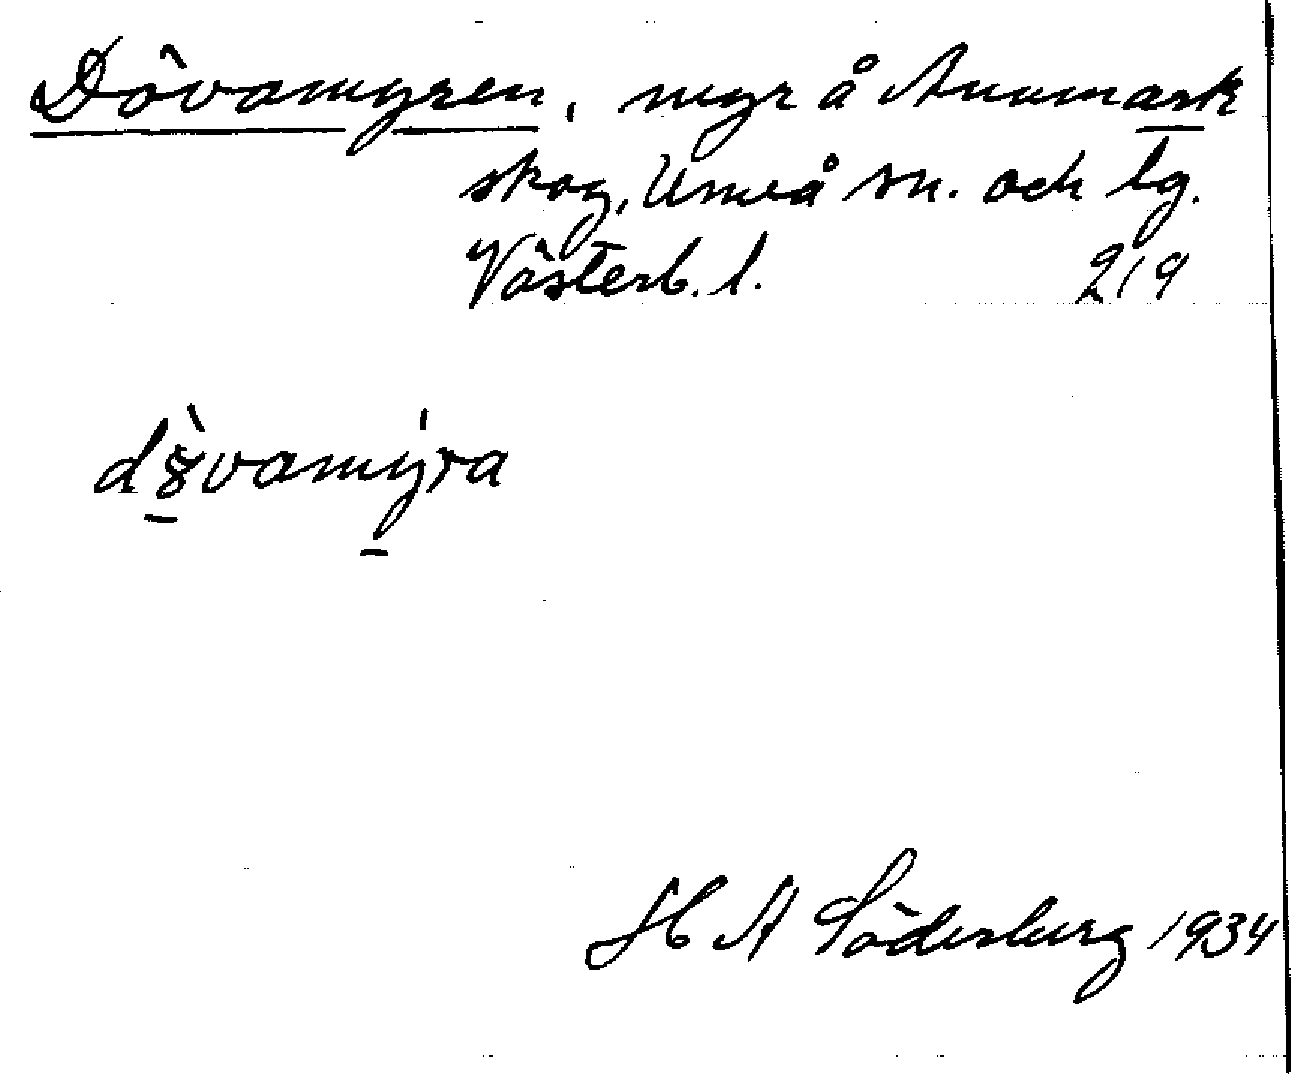 Dövamyren, myr å Anumark
skog, Umeå sn. och tg.
Västerb. l. 219
dȣ̀vamýra
H A Söderberg 1934